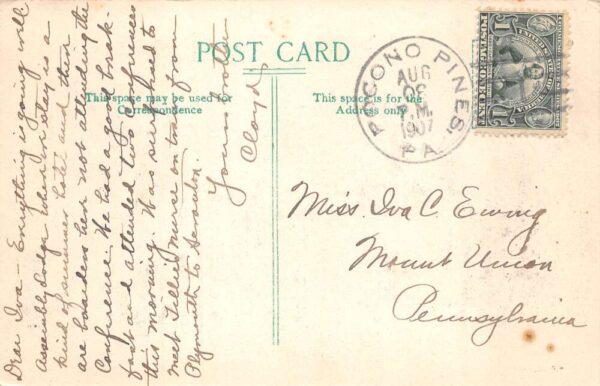 POST CARD
This space may be used for
Correspondence
This space is for the
Address only
POCONO PINES
AUG
P.M.
1907
PA.
1
1
Miss. Iva C. Ewing
Mount Union
Pennsylvania
Dear Iva - Everything is going well
Assembly Lodge where I stay is a
kind of summer hotel and there
are boarders here not attending the
Conference. We had a good break-
fast and attended two conferences
this morning. Was surprised to
meet Tillie's nurse on train from
Plymouth to Scranton.
Your brother
Cloyd